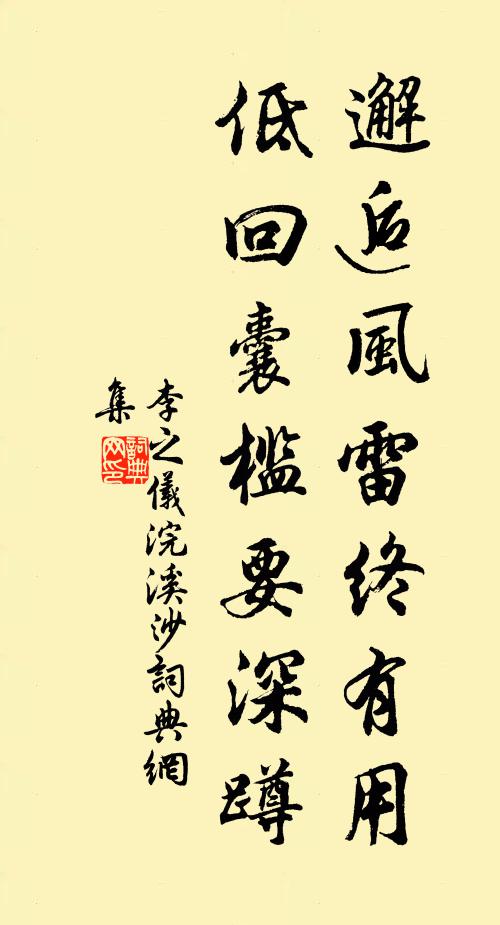 邂逅風雷終有用
低回囊檻要深蹲
李之儀浣溪沙詞典網
集
詞典
网印